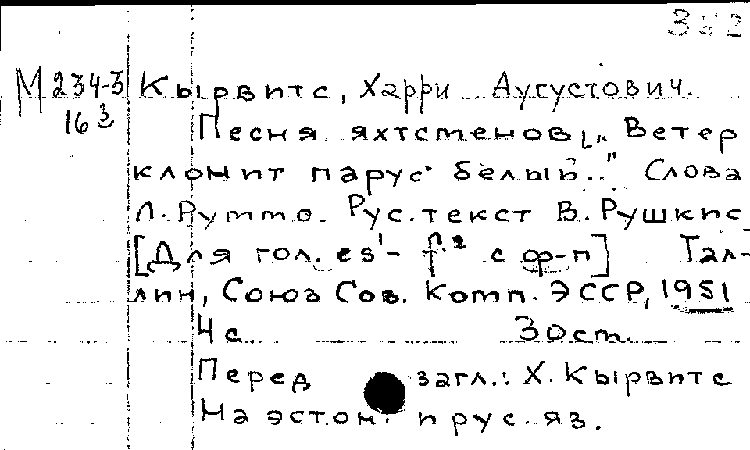 М 234-3 Кырвитс, Харри Аугустович.
16 3 Песня яхтсменов. „Ветер
клонит парус белый.." Слова
Л. Руммо. Рус. текст В. Рушкис
[Для гол. es¹- f² с ф-п] Тал-
лин, Союз Сов. Комп. ЭССР, 1951
4 с 30 ст.
Перед загл.: Х. Кырвитс
На эстон. и рус. яз.